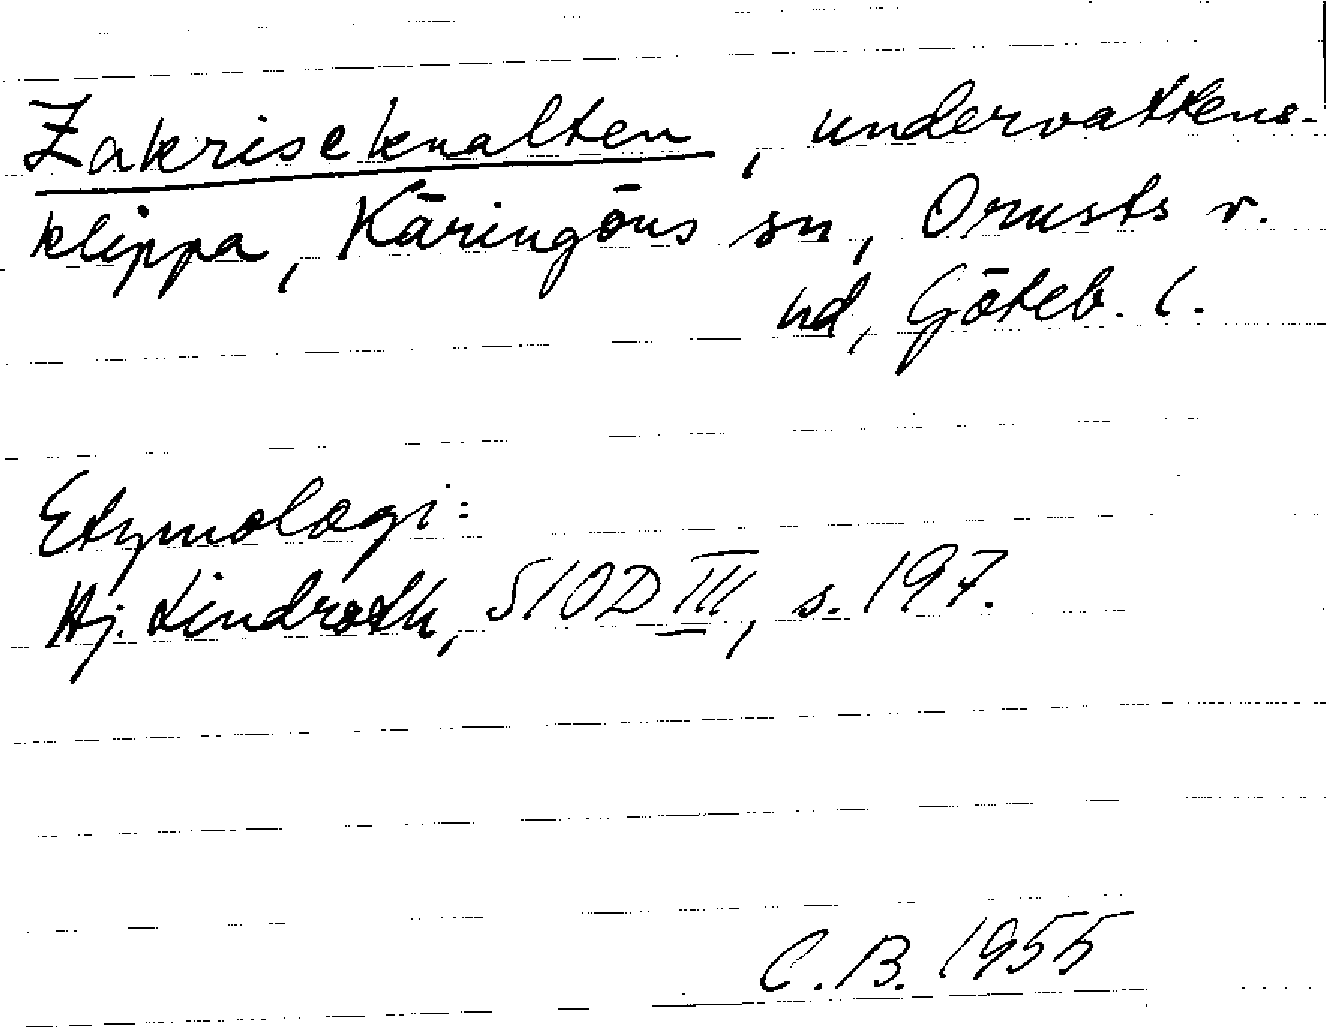 Zakriseknalten, undervattens-
klippa, Käringöns sn, Orusts v.
hd, Göteb. l.
Etymologi:
Hj. Lindroth, SIOD III, s. 197.
C.B. 1955